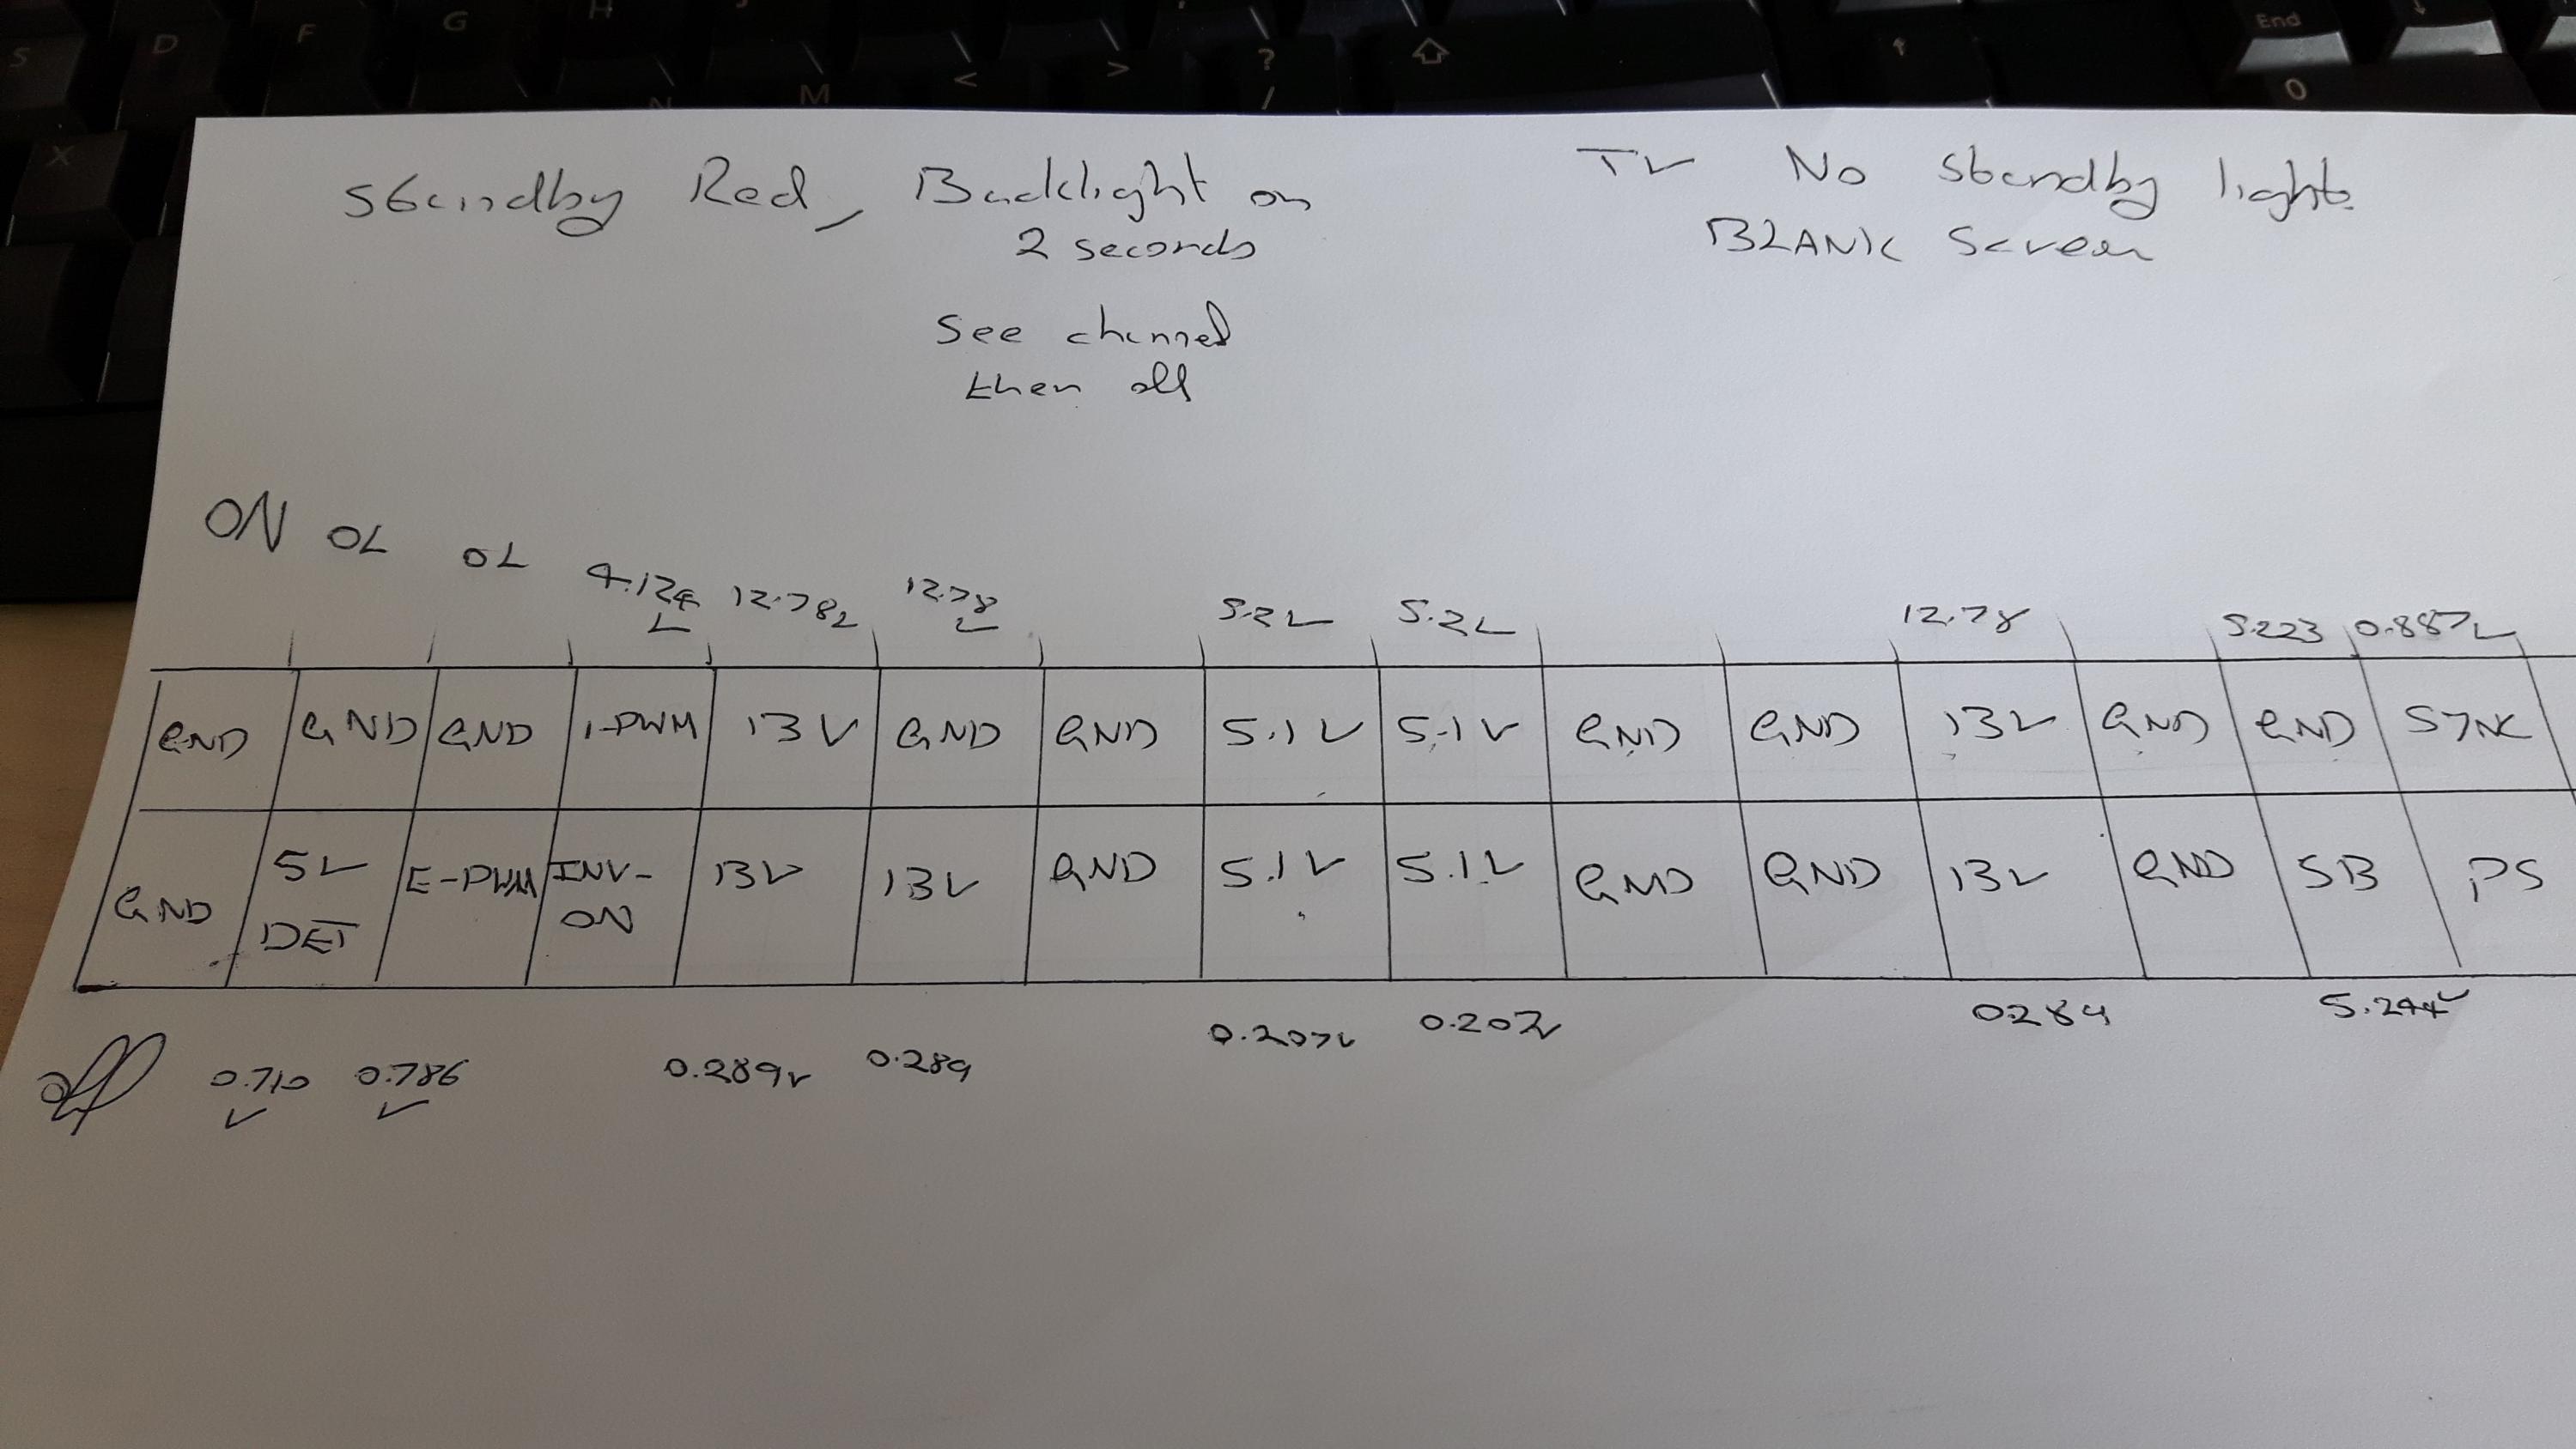 S D F G H End
X N M < > ? / 0
Standby Red, Backlight on
2 seconds
See channel
then off
TV No standby light
BLANK Screen
ON 0V 0V 4.124V 12.78V 12.78V 5.2V 5.2V 12.78 5.223 0.887V
GND GND GND I-PWM 13V GND GND 5.1V 5.1V GND GND 13V GND GND SYNC
GND 5V DET E-PWM INV-ON 13V 13V GND 5.1V 5.1V GND GND 13V GND SB PS
off 0.710V 0.786V 0.289V 0.289 0.207V 0.207V 0.289 5.244V